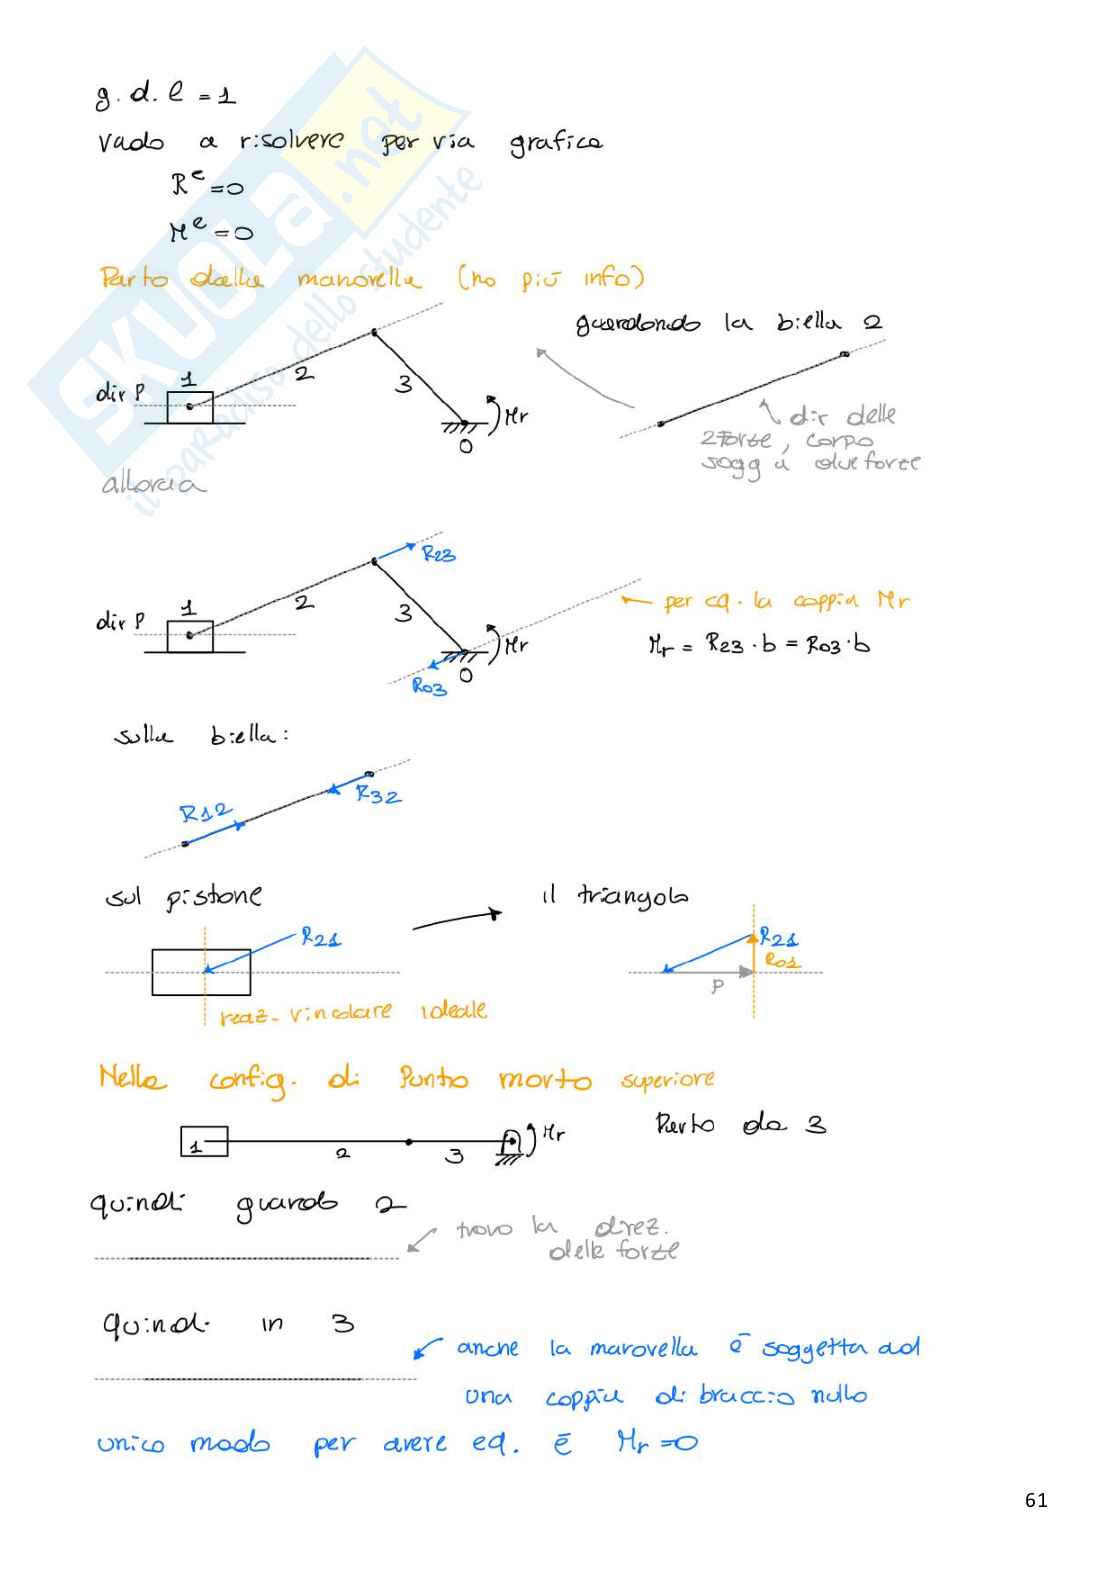 g.d.l = 1
vado a risolvere per via grafica
Rᵉ = 0
Mᵉ = 0
Parto dalla manovella (ho più info)
guardando la biella 2
dir P
1
2
3
Mr
O
dir delle
2 forze, corpo
sogg a due forze
allora
R23
dir P
1
2
3
Mr
O
R03
per eq. la coppia Mr
Mr = R23 · b = R03 · b
sulla biella:
R12
R32
sul pistone
il triangolo
R21
reaz. vincolare ideale
R21
R01
P
Nella config. di Punto morto superiore
1
2
3
Mr
Parto da 3
quindi guardo 2
trovo la direz.
delle forze
quindi in 3
anche la manovella è soggetta ad
una coppia di braccio nullo
unico modo per avere eq. è Mr = 0
SKUOLA.net
il paradiso dello studente
61